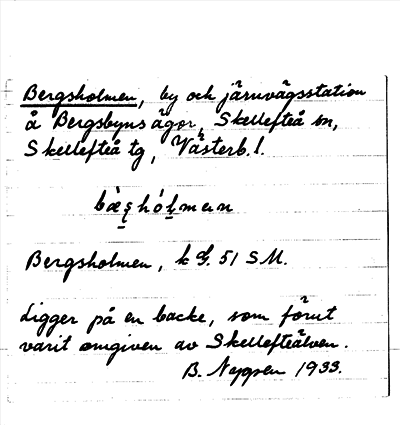 Bergsholmen, by och järnvägsstation
å Bergsbyns ägor, Skellefteå sn,
Skellefteå tg, Västerb. l.
Bergsholmen, k bl. 51 S.M.
Ligger på en backe, som förut
varit omgiven av Skellefteälven.
B. Nygren 1933.